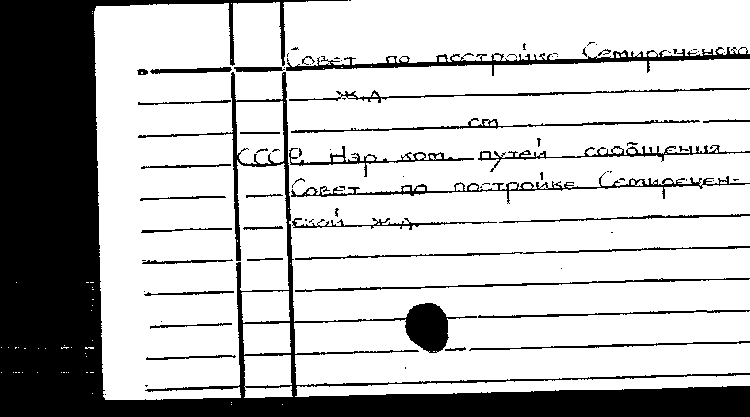 Совет по постройке Семиреченско
ж.д.
см
СССР. Нар. ком. путей сообщения.
Совет по постройке Семиречен-
ской ж.д.